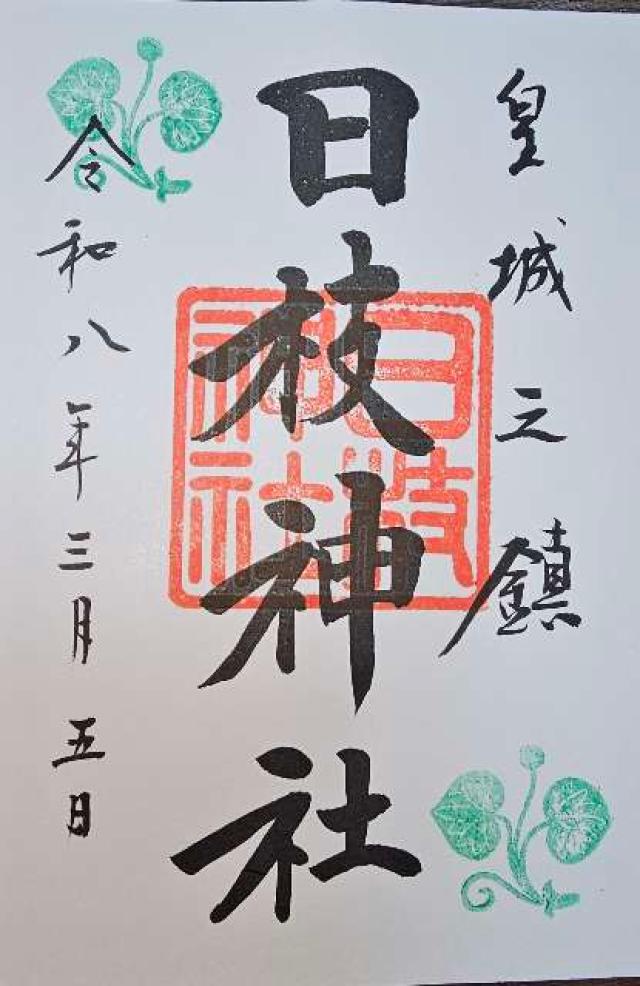 皇城之鎮
日枝神社
日枝神社
令和八年三月五日